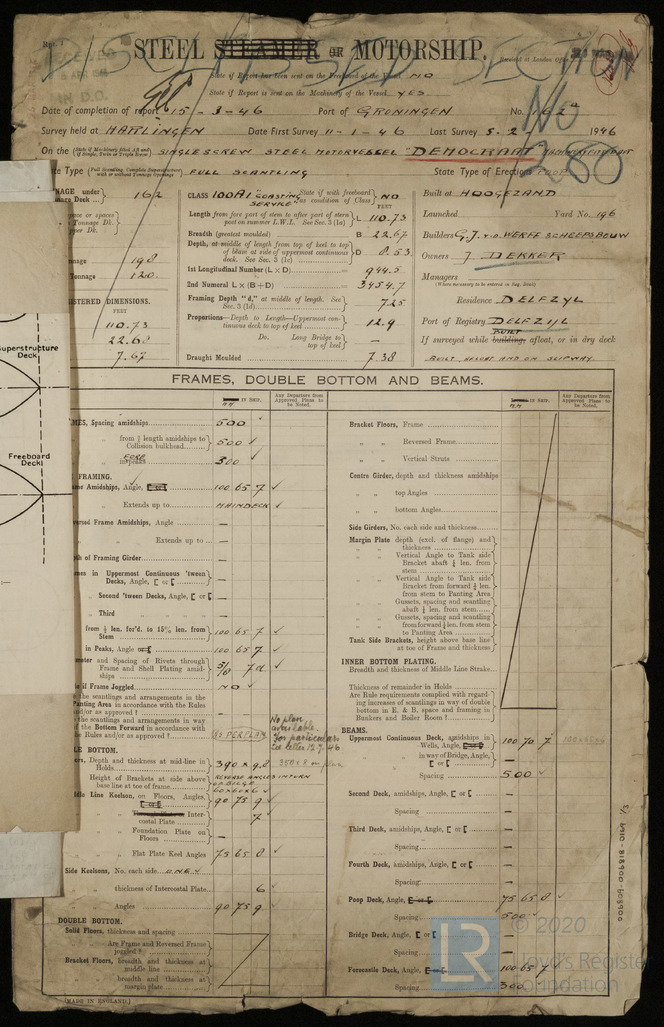 STEEL STEAMER OR MOTORSHIP.
Received at London Office
State if Report has been sent on the Freeboard of the Vessel NO
State if Report is sent on the Machinery of the Vessel YES
Date of completion of report 15-3-46 Port of GRONINGEN No. 62a
Survey held at HARLINGEN Date First Survey 11-1-46 Last Survey 5-2 1946
On the (State if Machinery fitted Aft and if Single, Twin or Triple Screw) SINGLE SCREW STEEL MOTORVESSEL "DEMOCRAAT" MACHINERY AFT
Type (Full Scantling, Complete Superstructure with or without Tonnage Openings) FULL SCANTLING State Type of Erection POOP
TONNAGE under 162
CLASS 100A1 COASTING SERVICE State if with freeboard as condition of Class NO
Built at HOOGEZAND
Length from fore part of stem to after part of stern post on summer L.W.L. See Sec. 3 (1a) L 110.73
Launched Yard No. 196
Breadth (greatest moulded) B 22.67
Builders G.J. v.d. WERFF SCHEEPSBOUW
Depth, at middle of length from top of keel to top of beam at side of uppermost continuous deck. See Sec. 3 (1c) D 8.53
Owners J DEKKER
198
1st Longitudinal Number (L × D) 944.5
Managers
Tonnage 120
2nd Numeral L × (B + D) 3454.7
(Where necessary to be entered in Reg. Book)
REGISTERED DIMENSIONS.
FEET
Framing Depth "d," at middle of length. See Sec. 3 (1d) 7.25
Residence DELFZYL
110.73
Proportions—Depth to Length—Uppermost continuous deck to top of keel 12.9
Port of Registry DELFZYL
22.68
Do. Long Bridge to top of keel —
If surveyed while building, afloat, or in dry dock
BUILT
7.67
Draught Moulded 7.38
BUILT AFLOAT AND ON SLIPWAY.
Superstructure Deck
Freeboard Deck
FRAMES, DOUBLE BOTTOM AND BEAMS.
IN SHIP.
Any Departure from Approved Plans to be Noted.
IN SHIP.
Any Departure from Approved Plans to be Noted.
FRAMES, Spacing amidships 500 ✓
from ⅗ length amidships to Collision bulkhead 500 ✓
FORE peaks 300 ✓
FRAMING.
Frame Amidships, Angle, 100 65 7 ✓
Extends up to MAINDECK ✓
Reversed Frame Amidships, Angle —
Extends up to —
Depth of Framing Girder —
Frames in Uppermost Continuous 'tween Decks, Angle, [ or [ —
Second 'tween Decks, Angle, [ or [ —
Third —
from ⅗ len. for'd. to 15% len. from Stem 100 65 7 ✓
in Peaks, Angle or 100 65 7 ✓
Diameter and Spacing of Rivets through Frame and Shell Plating amidships 5/8 7d ✓
State if Frame Joggled NO ✓
Are the scantlings and arrangements in the Panting Area in accordance with the Rules and/or as approved ?
Are the scantlings and arrangements in way of the Bottom Forward in accordance with the Rules and/or as approved ? AS PER PLAN
No plan available. For particulars See letter 12.7.46
SINGLE BOTTOM.
Floors, Depth and thickness at mid-line in Holds 390 × 8 350 × 8 on plan
Height of Brackets at side above base line at toe of frame REVERSE ANGLES IN TURN OF BILGE 60×60×6 ✓
Middle Line Keelson, on Floors, Angles, 90 75 9 ✓
Intercostal Plate 7 ✓
Foundation Plate on Floors —
Flat Plate Keel Angles 75 65 8 ✓
Side Keelsons, No. each side ONE ✓
thickness of Intercostal Plate 6 ✓
Angles 90 75 9 ✓
DOUBLE BOTTOM.
Solid Floors, thickness and spacing
Are Frame and Reversed Frame joggled ?
Bracket Floors, breadth and thickness at middle line
breadth and thickness at margin plate
[MADE IN ENGLAND.]
Bracket Floors, Frame
" " Reversed Frame
" " Vertical Struts
Centre Girder, depth and thickness amidships
" " top Angles
" " bottom Angles
Side Girders, No. each side and thickness
Margin Plate depth (excl. of flange) and thickness
" " Vertical Angle to Tank side Bracket abaft ¼ len. from stem
" " Vertical Angle to Tank side Bracket from forward ¼ len. from stem to Panting Area
" " Gussets, spacing and scantling abaft ¼ len. from stem
" " Gussets, spacing and scantling from forward ¼ len. from stem to Panting Area
Tank Side Brackets, height above base line at toe of Frame and thickness
INNER BOTTOM PLATING.
Breadth and thickness of Middle Line Strake
Thickness of remainder in Holds
Are Rule requirements complied with regarding increases of scantlings in way of double bottom in E. & B. space and framing in Bunkers and Boiler Room ?
BEAMS.
Uppermost Continuous Deck, amidships in Wells, Angle, 100 70 7 ✓
" " in way of Bridge, Angle, [ or [ —
Spacing 500 ✓
Second Deck, amidships, Angle, [ or [ —
Spacing —
Third Deck, amidships, Angle, [ or [ —
Spacing —
Fourth Deck, amidships, Angle, [ or [ —
Spacing —
Poop Deck, Angle, [ or [ 75 65 8 ✓
Spacing 500
Bridge Deck, Angle, [ or [ —
Spacing —
Forecastle Deck, Angle, 100 65 7 ✓
Spacing 300
006809-006818-0169 1/3
© 2020
LR
Lloyd's Register
Foundation